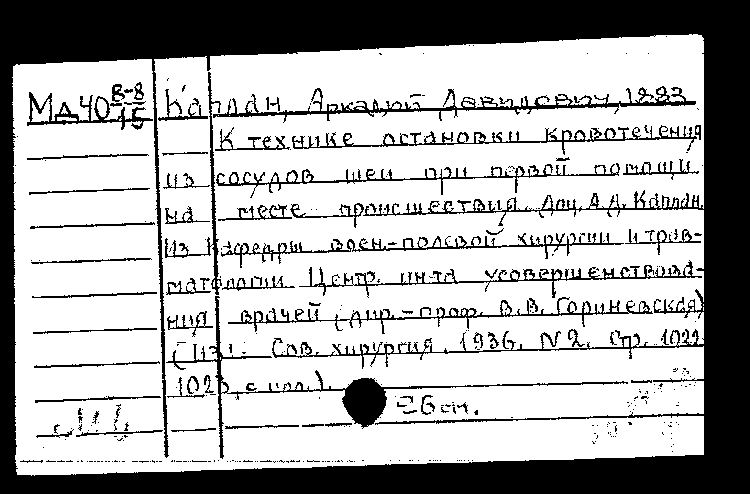 Мд 40 В-8/15 Каплан, Аркадий Давидович, 1883
К технике остановки кровотечения
из сосудов шеи при первой помощи
на месте происшествия. Доц. А.Д. Каплан.
Из Кафедры воен.-полевой хирургии и трав-
матологии Центр. ин-та усовершенствова-
ния врачей (дир. - проф. В.В. Гориневская)
(Из: Сов. хирургия. 1936. N 2. Стр. 1022-
1023, с илл.).
26 см.